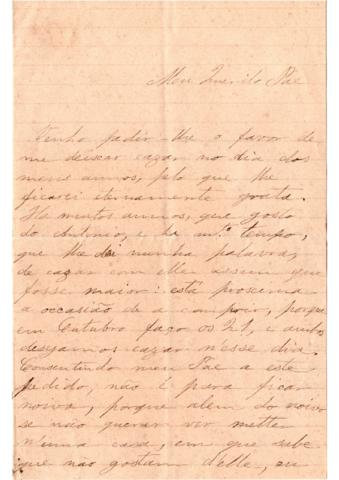 Meu Querido Pae
Tenho pedir-lhe o favor de
me deixar cazar no dia dos
meus annos, pelo que lhe
ficarei eternamente grata.
Ha muitos annos, que gosto
do Antonio, e ha mto tempo,
que lhe dei minha palavra,
de cazar com elle assim que
fosse maior: está proxima
a occasião de a comprir, porque
em Outubro faço os 21, e ambos
desejamos cazar n'esse dia.
Consentindo meu Pae a este
pedido, não é para ficar
noiva, porque alem do noivo
se não querer vir metter
n'uma casa, em que sabe
que não gostam d'elle, eu